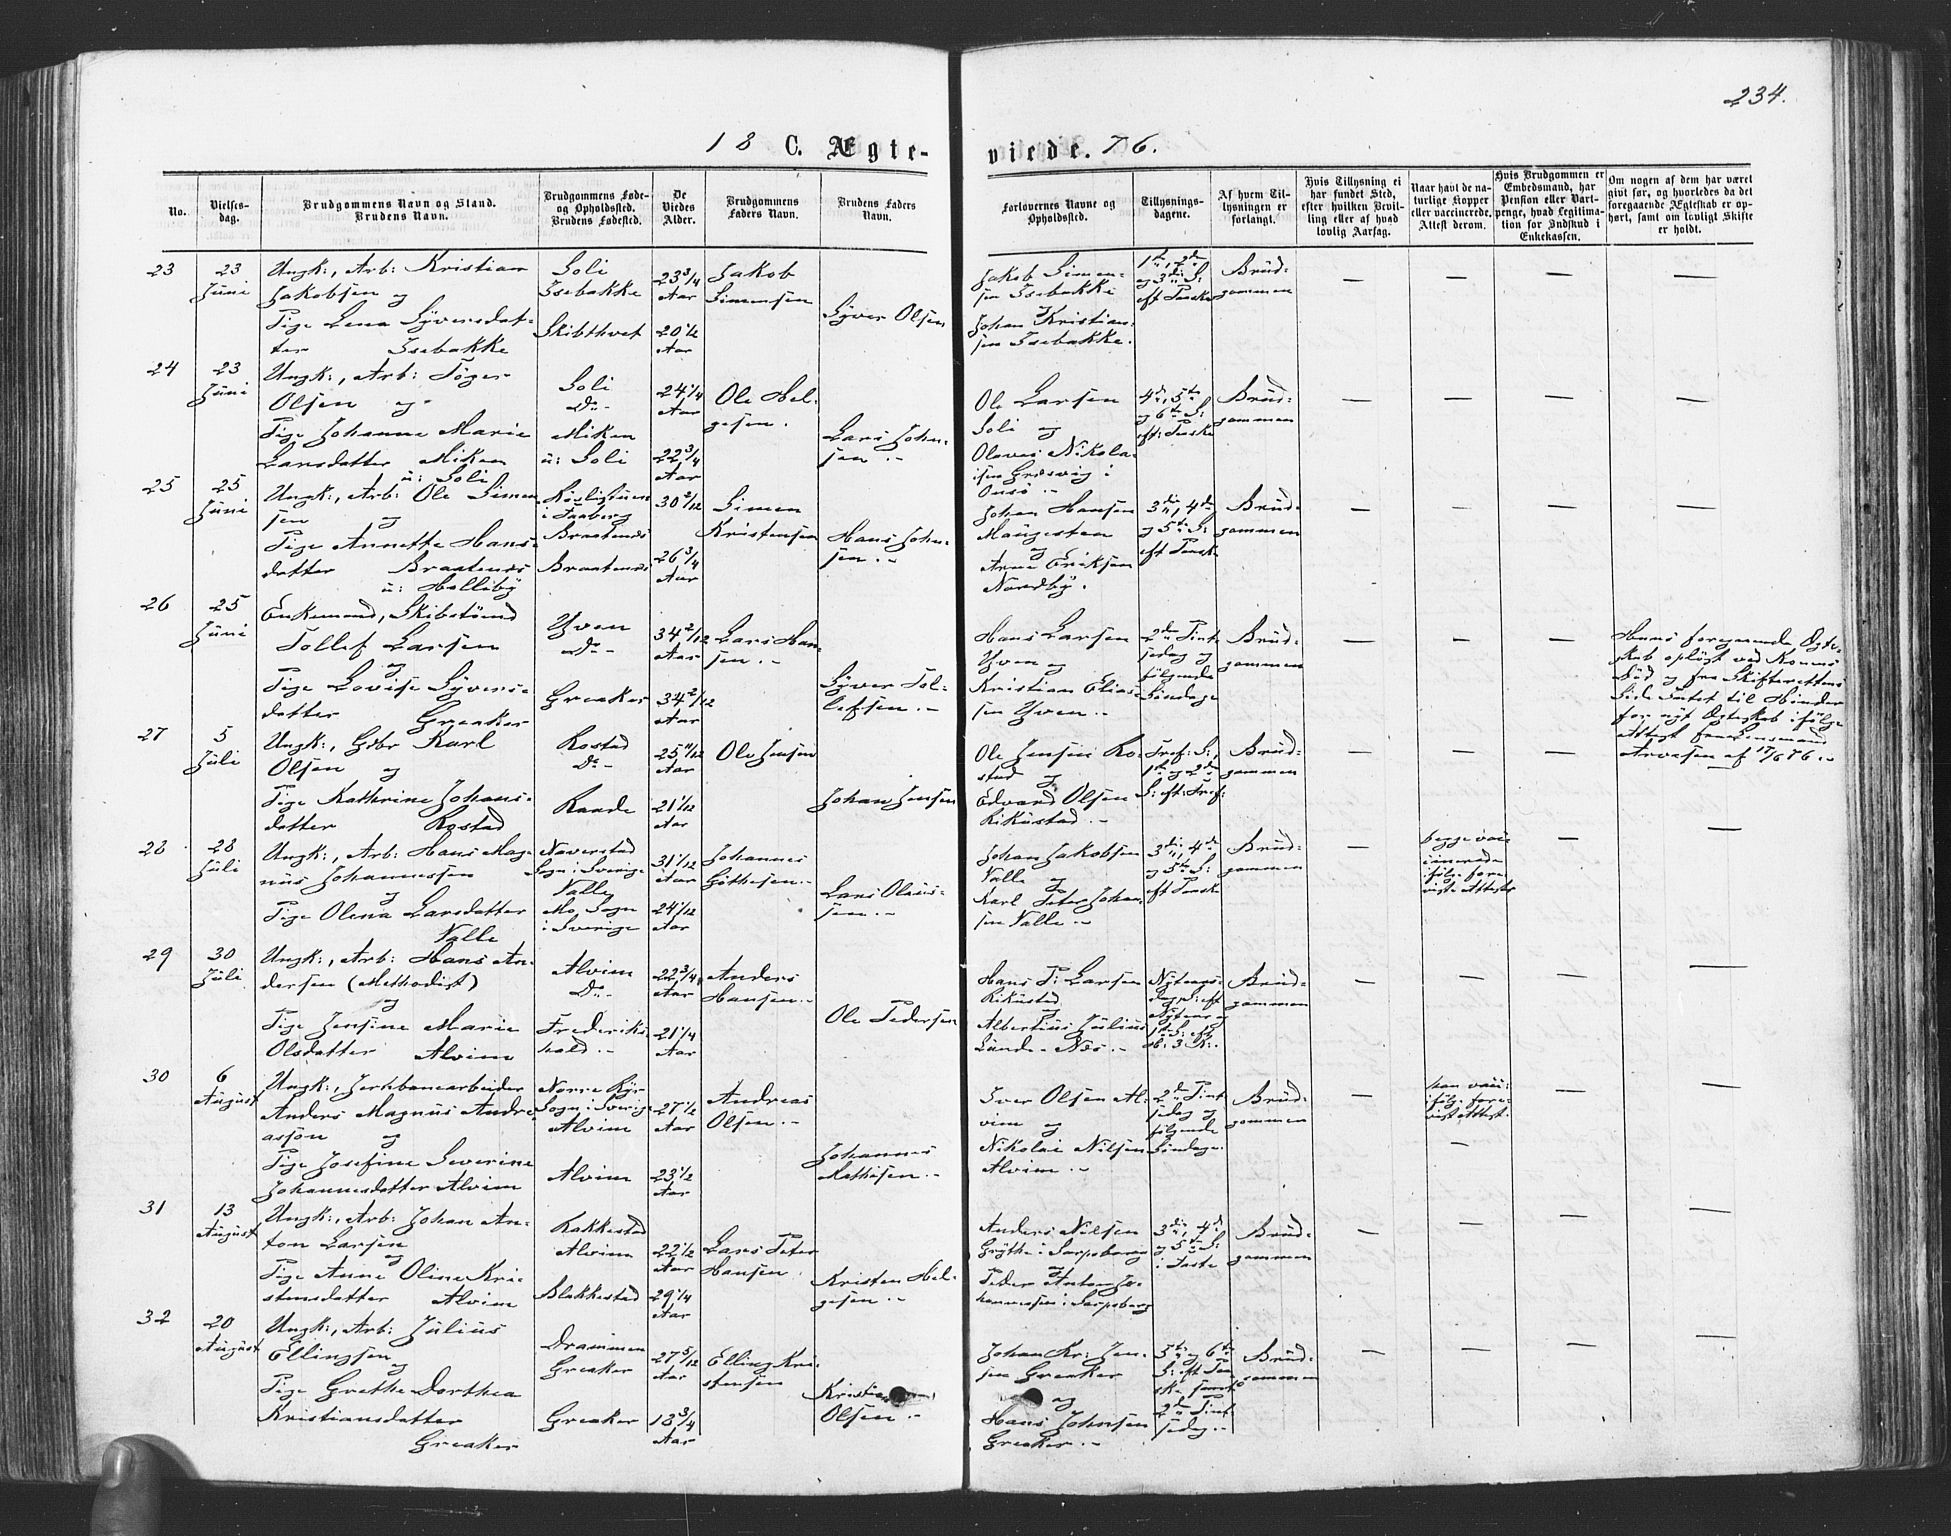 234.
18 C. Ægte-
viede. 76.
No.
Vielses-
dag.
Brudgommens Navn og Stand.
Brudens Navn.
Brudgommens Føde-
og Opholdssted.
Brudens Fødested.
De
Viedes
Alder.
Brudgommens
Faders Navn.
Brudens Faders
Navn.
Forlovernes Navne og
Opholdssted.
Tillysnings-
dagene.
Af hvem Til-
lysningen er
forlangt.
Hvis Tillysning ei
har fundet Sted,
efter hvilken Bevil-
ling eller af hvad
lovlig Aarsag.
Naar havt de na-
turlige Kopper
eller vaccinerede,
Attest derom.
Hvis Brudgommen er
Embedsmand, har
Pension eller Vart-
penge, hvad Legitima-
tion for Indskud i
Enkekassen.
Om nogen af dem har været
gift før, og hvorledes da det
foregaaende Ægteskab er op-
hørt, samt om lovligt Skifte
er holdt.
23
23
Juni
Ungk:, Arb: Kristian
Jakobsen og
Pige Lena Syversdat-
ter Isebakke
Soli
Isebakke
Skibthvet
23 3/4
Aar
20 1/2
Aar
Jakob
Simensen
Syver Olsen
Jakob Simen-
sen Isebakke
Johan Kristian-
sen Isebakke.
1ste, 2den
og 3die S:
eft Paaske
Brud-
gommen
24
23
Juni
Ungk:, Arb:
Olsen og
Pige Johanne Marie
Larsdatter Miken
u: Soli
Soli
Do-
Miken
u: Soli
24 1/4
Aar
22 3/4
Aar
Ole Hel-
gesen.
Lars John-
sen.-
Ole Larsen
Soli og
Olaves Nikola-
isen Græsvig i
Onsø.-
4de, 5te
og 6te S:
eft: Paaske
Brud-
gommen
25
25
Juni
Ungk:, Arb: Ole Simen-
sen og
Pige Annette Hans-
datter Braatenes
u: Helleby
i Faaberg
Braatenes
Braatenes
30 2/12
26 3/4
Aar
Simen
Kristensen
Hans John-
sen.-
Johan Hansen
Haugesten
og
Arne Eriksen
Nordby.
3die, 4de
og 5te S:
eft Paaske
Brud-
gommen
26
25
Juni
Enkemand, Skibstømd
Tollef Larsen
og
Pige Lovise Syvers-
datter Greaker
Yven
Do-
Greaker
34 2/12
Aar
34 2/12
Aar
Lars Han-
sen.-
Syver Tol-
lefsen.-
Hans Larsen
Yven og
Kristian Elias-
sen Yven.-
2den Pint-
sedag og
følgende
Søndage
Brud-
gommen
Hans foregaaende Ægte-
skab opløst ved Konens
Død og fra Skifterettens
Side Intet til Hinder
for nyt Ægteskab ifølge
Attest fra Lensmand
Arvesen af 17/6 76.-
27
5
Juli
Ungk:, Gdbr Karl
Olsen og
Pige Kathrine Johans-
datter Rostad
Rostad
Do-
Raade
Aar
21 1/12
Aar
Ole Jensen
Johan Jensen
Ole Jensen Ro-
stad og
Edvard Olsen
Rikustad.-
Tref: S:,
1ste og 2den
S: eft: Tref:
Brud-
gommen
28
28
Juli
Ungk:, Arb: Hans Mag-
nus Johannessen
og
Pige Olena Larsdatter
Valle
Naverstad
Sogn i Sverige
Valle
Mo Sogn
i Sverige
31 1/12
Aar
24 1/12
Aar
Johannes
Gøthesen.-
Lars Olaus-
sen.-
Johan Jakobsen
Valle og
Karl Peter Johan-
sen Valle.-
3die, 4de
og 5te S:
eft Paaske
Brud-
gommen
begge vac-
cinerede
ifølge fore-
viste Attester
29
30
Juli
Ungk:, Arb: Hans An-
dersen (Methodist)
og
Pige Jensine Marie
Olsdatter Alvim
Alvim
Do-
Frederiks-
hald.-
22 3/4
Aar
21 1/4
Aar
Anders
Hansen.-
Ole Pedersen
Hans P: Larsen
Rikustad
og
Albertius Julius
Lunde-Næs.-
Nytaars-
dag, S: eft
Nytaar og
1ste S: eft
H: 3 K:.
Brud-
gommen
30
6
August
Ungk:, Jernbanearbeider
Anders Magnus Andre-
assøn og
Pige Josefine Severine
Johannesdatter Alvim
Norre Ryr
Sogn i Sverige
Alvim
Alvim
27 1/2
Aar
23 1/2
Aar
Andreas
Olsen.-
Johannes
Mathisen.-
Iver Olsen Al-
vim og
Nikolai Nilsen
Alvim.-
2den Pint-
sedag og
følgende
Søndage.
Brud-
gommen
han vacc:
ifølge fore-
vist Attest.
31
13
August
Ungk:, Arb: Johan An-
ton Larsen
og
Pige Anne Oline Kri-
stensdatter Alvim
Rakkestad
Alvim
Blakkestad
22 1/2
Aar
29 1/4
Aar
Lars Peter
Hansen
Kristen Hel-
gesen.-
Anders Nilsen
Grythe i Sarpsborg
og
Peder Anton Jo-
hannessen i Sarpsborg
3die, 4de
og 5te S:
i Faste
Brud-
gommen
32
20
August
Ungk:, Arb: Julius
Ellingsen
og
Pige Grethe Dorthea
Kristiansdatter
Greaker
Drammen
Greaker
Greaker
27 5/12
Aar
18 3/4
Aar
Elling Kri-
stensen
Kristian
Olsen.-
Johan Kr: Jen-
sen Greaker
og
Hans Johnsen
Greaker.-
5te og 6te
S: eft Paa-
ske samt
2den Pint-
sedag.-
Brud-
gommen